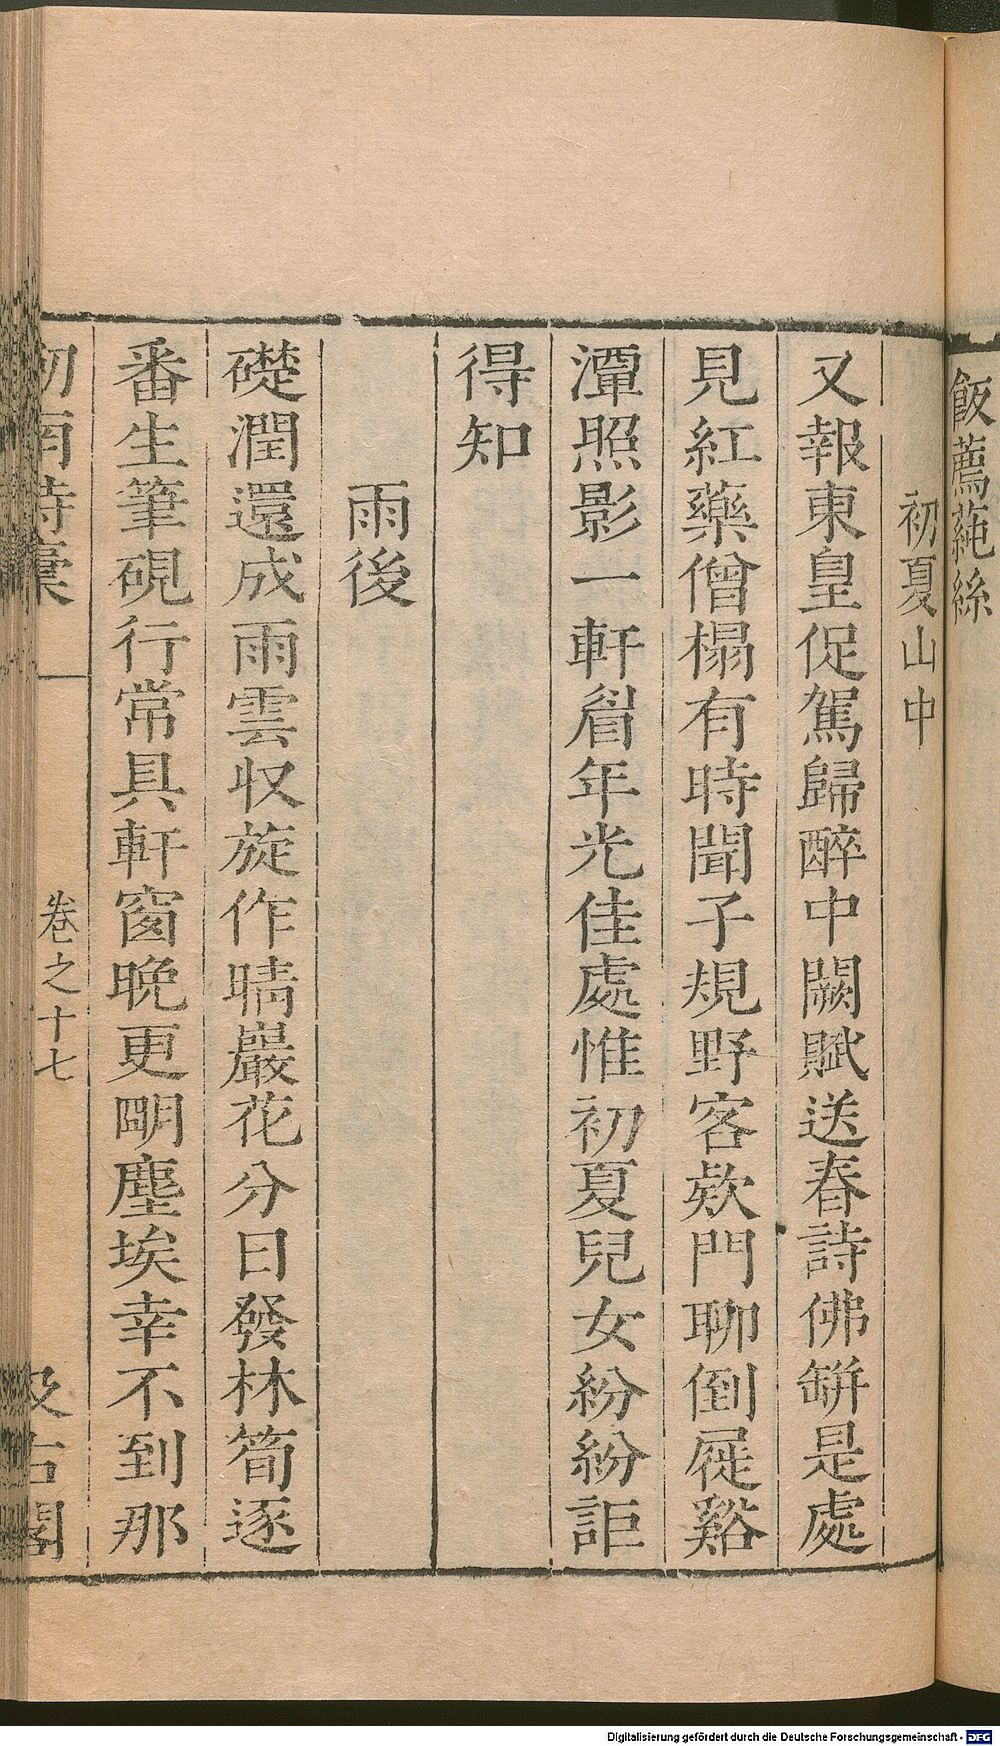 飯薦蒓絲
初夏山中
又報東皇促駕歸醉中闕賦送春詩佛缾是處
見紅藥僧榻有時聞子規野客欵門聊倒屣谿
潭照影一軒眉年光佳處惟初夏兒女紛紛詎
得知
雨後
礎潤還成雨雲収旋作晴巖花分日發林筍逐
番生筆硯行常具軒窗晚更明塵埃幸不到那
劍南詩稾
卷之十七
汲古閣
Digitalisierung gefördert durch die Deutsche Forschungsgemeinschaft - DFG